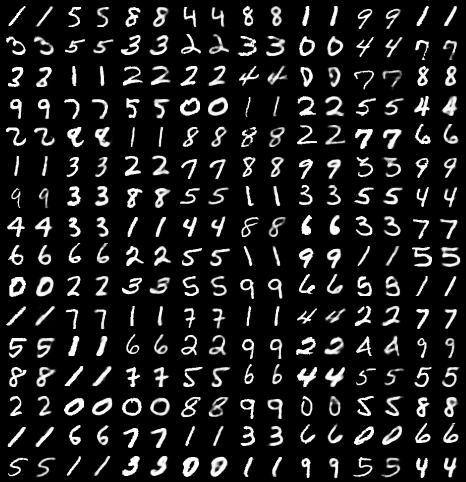 1 1 5 5 8 8 4 4 8 8 1 1 9 9 1 1
3 3 5 5 3 3 2 2 3 3 0 0 4 4 7 7
3 8 1 1 2 2 2 2 4 4 0 0 7 7 8 8
9 9 7 7 5 5 0 0 1 1 2 2 5 5 4 4
2 2 8 8 1 1 8 8 8 8 2 2 7 7 6 6
1 1 3 3 2 2 7 7 8 8 9 9 3 3 9 9
9 9 3 3 8 8 5 5 1 1 3 3 5 5 4 4
4 4 3 3 1 1 4 4 8 8 6 6 3 3 7 7
6 6 6 6 2 2 5 5 1 1 9 9 1 1 5 5
0 0 2 2 3 3 5 5 9 9 6 6 5 5 1 1
1 1 7 7 1 1 7 7 1 1 4 4 2 2 7 7
5 5 1 1 6 6 2 2 9 9 2 2 4 4 9 9
8 8 1 1 7 7 5 5 6 6 4 4 5 5 5 5
2 2 0 0 0 0 8 8 9 9 0 0 5 5 8 8
1 1 6 6 7 7 1 1 3 3 6 6 0 0 6 6
5 5 1 1 3 3 0 0 1 1 9 9 5 5 4 4